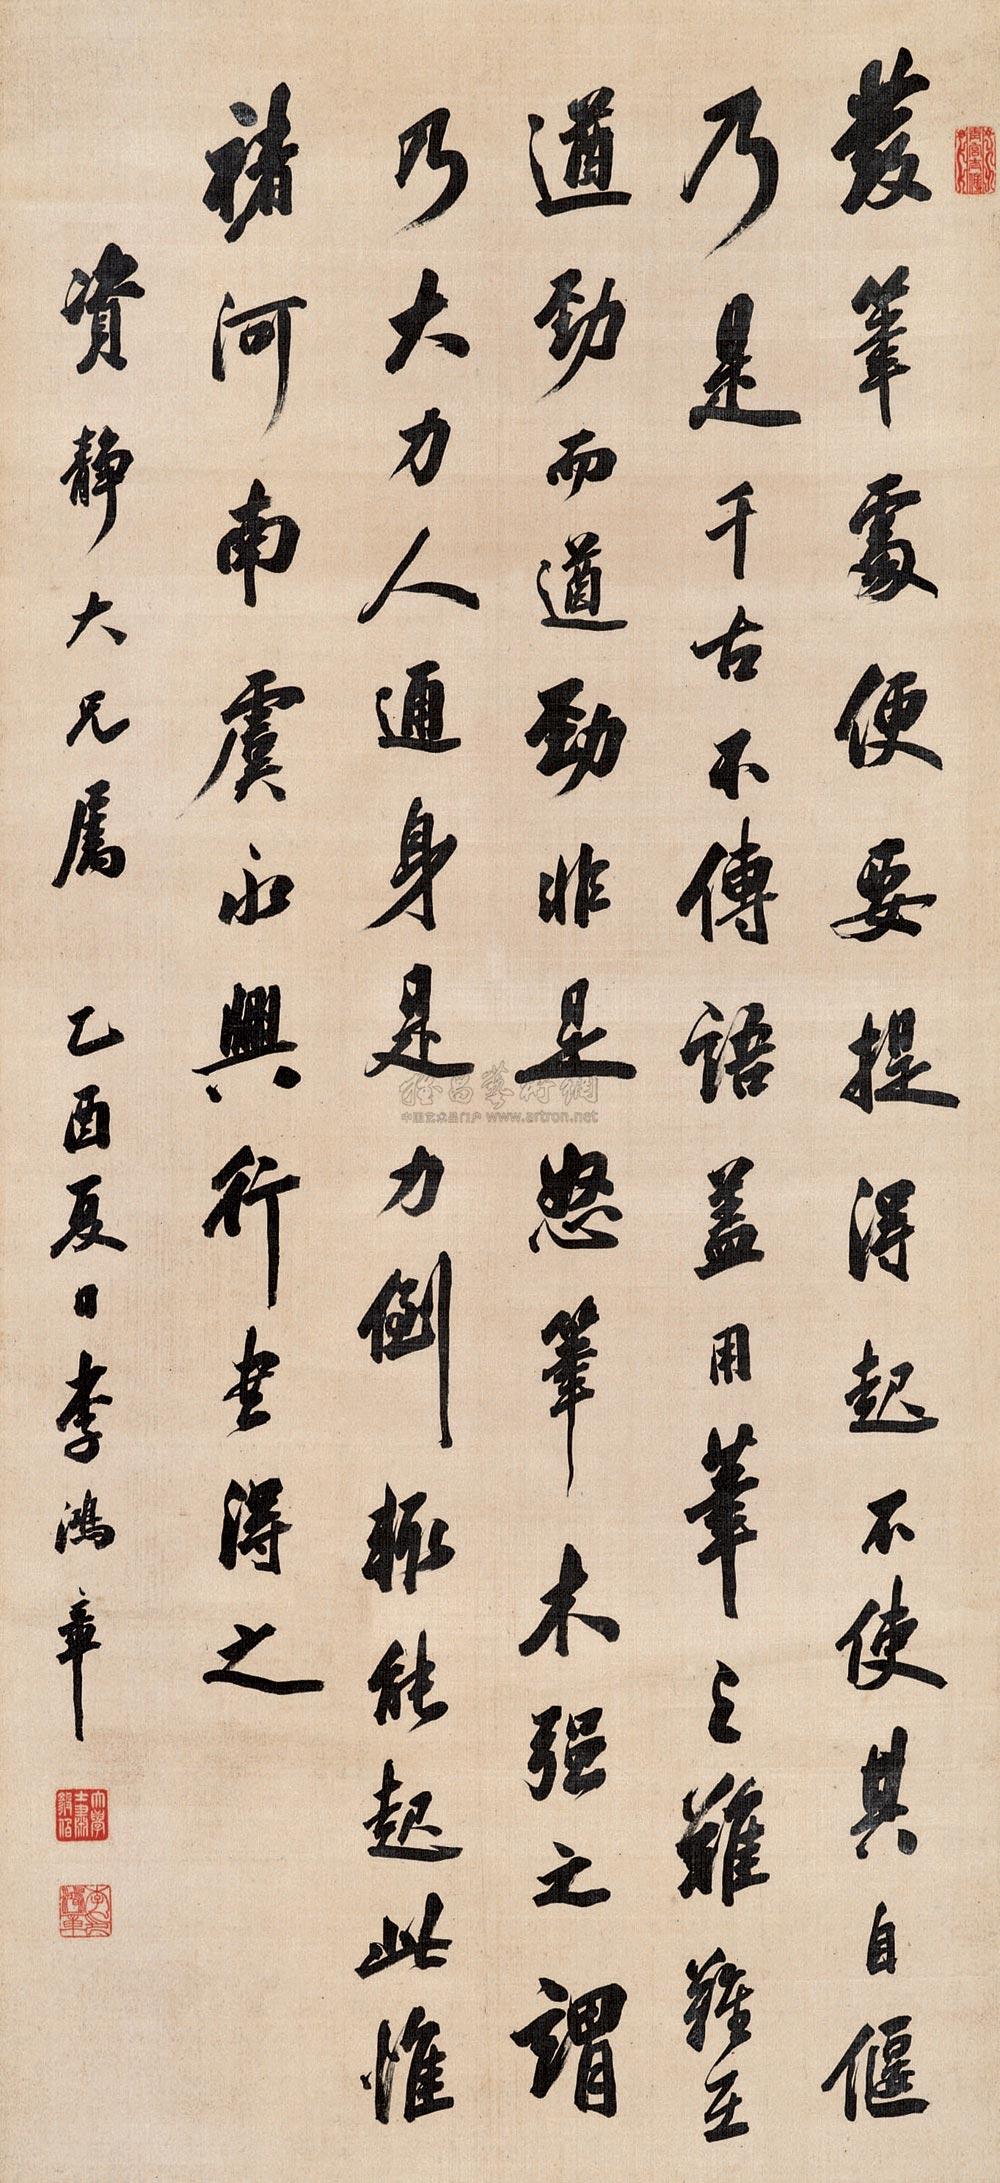 發筆處便要提得起不使其自偃
乃是千古不傳語蓋用筆之難難在
遒勁而遒勁非是怒筆木强之謂
乃大力人通身是力倒輒能起此惟
褚河南虞永興行書得之
資靜大兄屬 乙酉夏日李鴻章
大學士肅毅伯
李鴻章
中国艺术品门户 www.artron.net